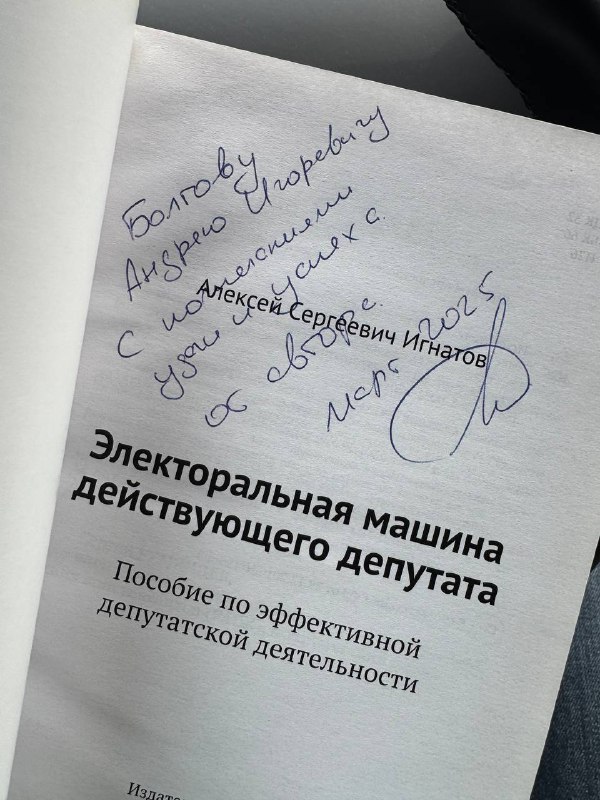 Болтову
Андрею Игоревичу
с пожеланиями
удачи и успеха
от автора.
март 2025
Алексей Сергеевич Игнатов
Электоральная машина
действующего депутата
Пособие по эффективной
депутатской деятельности